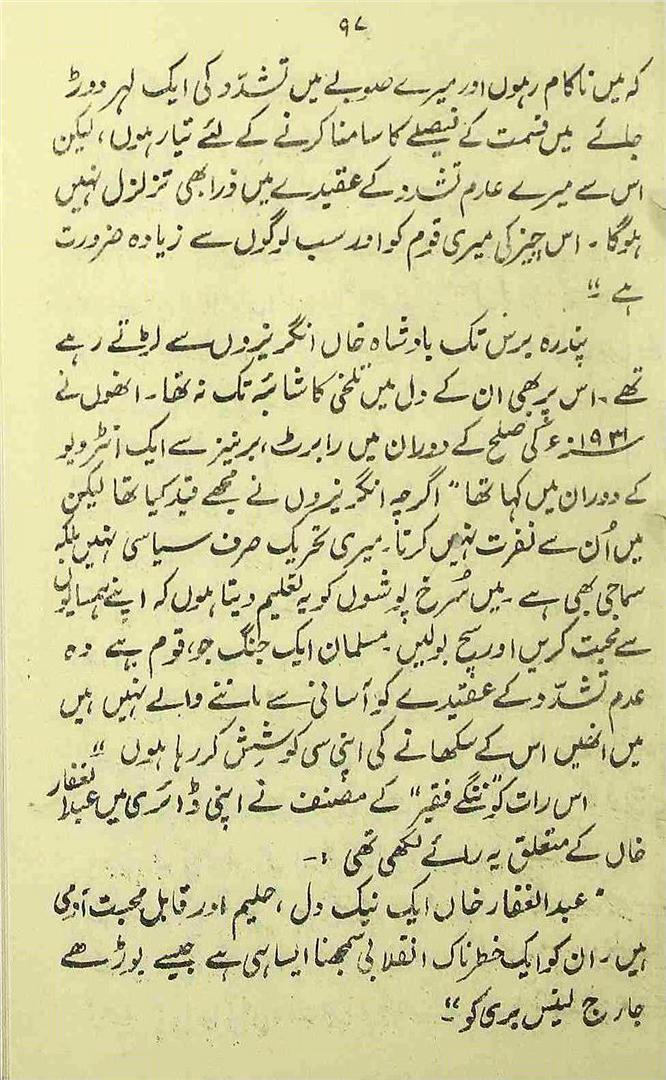 ۹۷
کہ میں ناکام رہوں اور میرے صوبے میں تشدّد کی ایک لہر دوڑ
جائے میں قسمت کے فیصلے کا سامنا کرنے کے لئے تیار ہوں، لیکن
اس سے میرے عدم تشدد کے عقیدے میں ذرا بھی تزلزل نہیں
ہوگا۔ اس چیز کی میری قوم کو اور سب لوگوں سے زیادہ ضرورت
ہے ۔"
پندرہ برس تک بادشاہ خاں انگریزوں سے لڑتے رہے
تھے۔ اس پر بھی ان کے دل میں تلخی کا شائبہ تک نہ تھا۔ انھوں نے
۱۹۳۱ء کی صلح کے دوران میں رابرٹ، برنیز سے ایک انٹرویو
کے دوران میں کہا تھا "اگرچہ انگریزوں نے مجھے قید کیا تھا لیکن
میں اُن سے نفرت نہیں کرتا۔ میری تحریک صرف سیاسی نہیں بلکہ
سماجی بھی ہے۔ میں سُرخ پوشوں کو یہ تعلیم دیتا ہوں کہ اپنے ہمسایوں
سے محبت کریں اور سچ بولیں۔ مسلمان ایک جنگ جو، قوم ہے وہ
عدم تشدّد کے عقیدے کو آسانی سے ماننے والے نہیں ہیں
میں انھیں اس کے سکھانے کی اپنی سی کوشش کر رہا ہوں "
اس رات کو "ننگے فقیر" کے مصنف نے اپنی ڈائری میں عبدالغفار
خاں کے متعلق یہ رائے لکھی تھی :۔
" عبدالغفار خاں ایک نیک دل، حلیم اور قابل محبت آدمی
ہیں۔ ان کو ایک خطرناک انقلابی سمجھنا ایسا ہی ہے جیسے بوڑھے
جارج لینس بری کو "